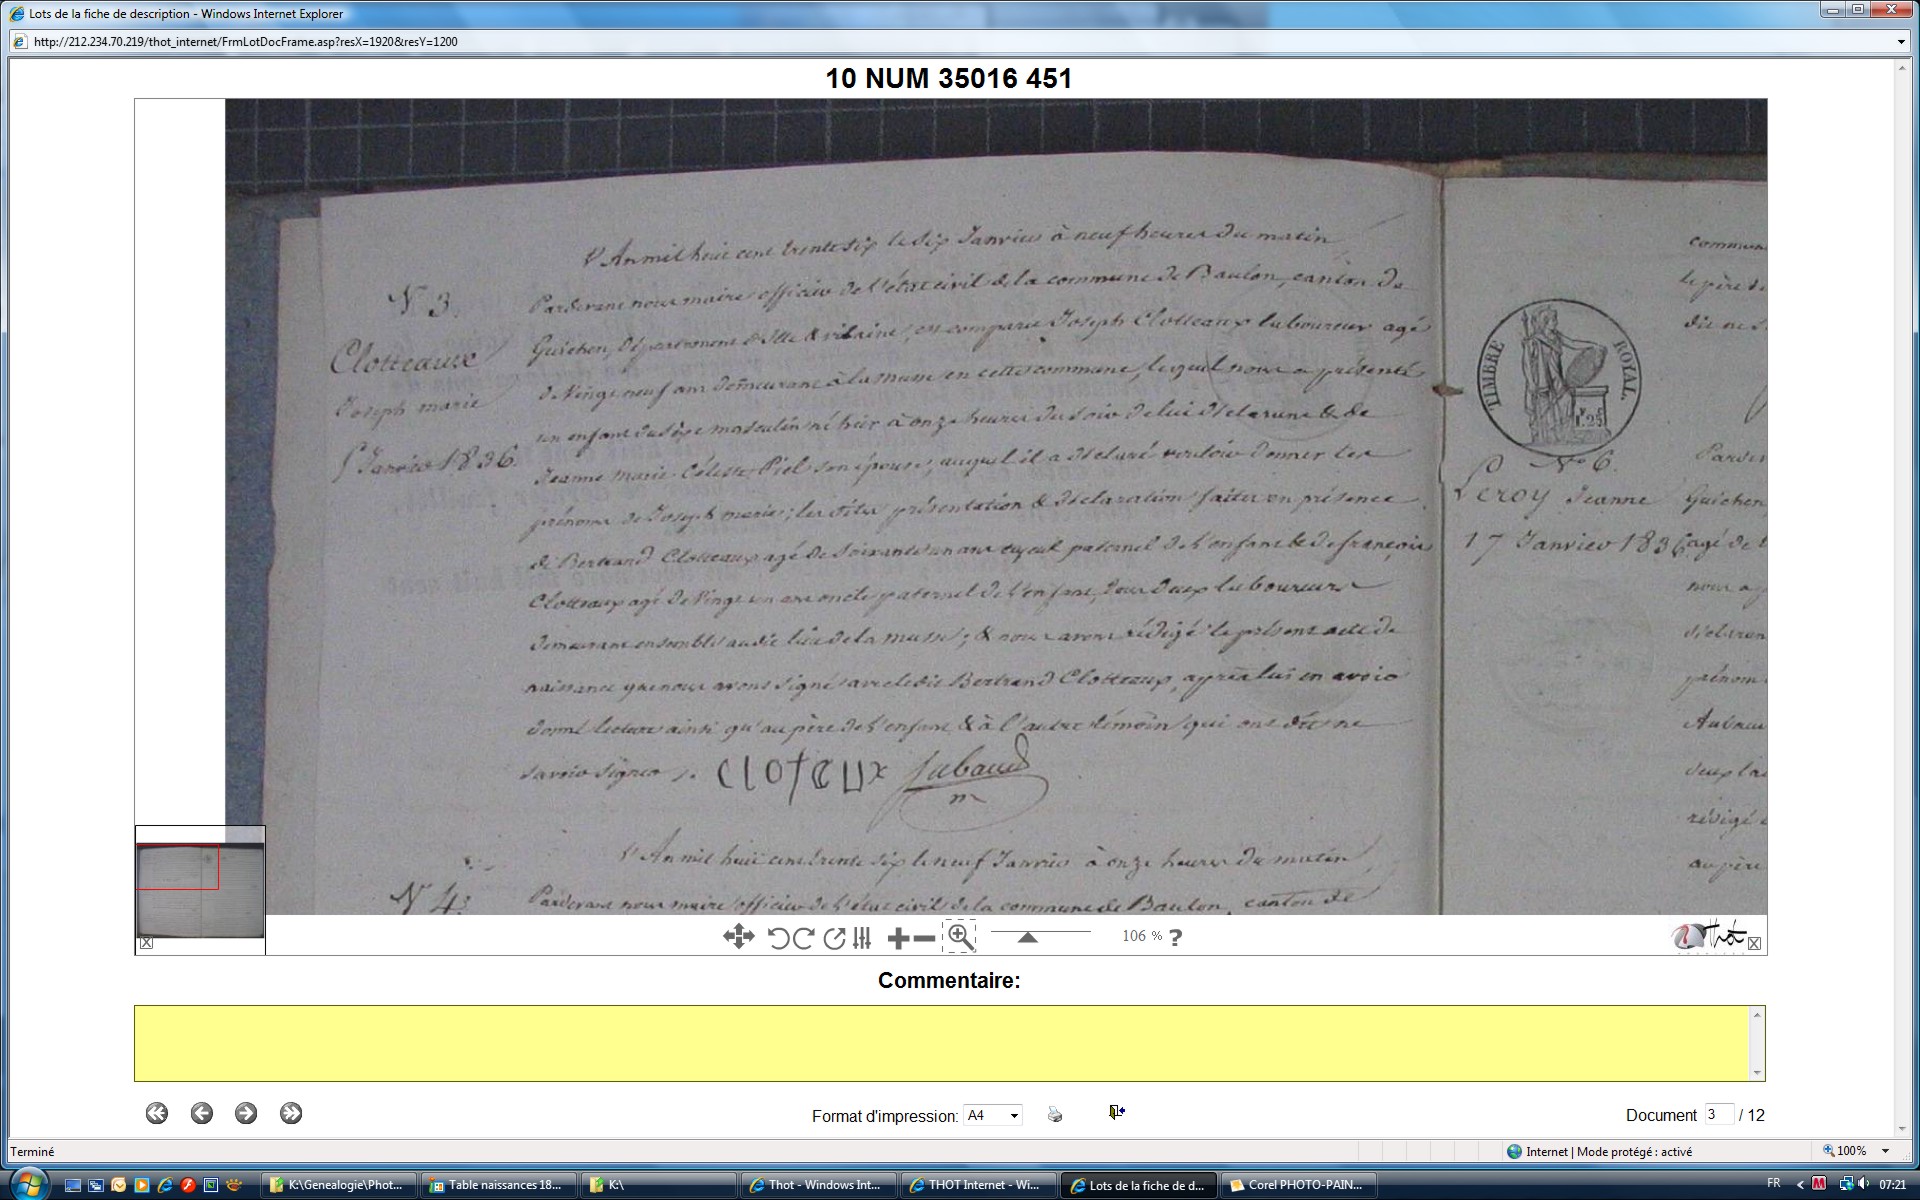 Lots de la fiche de description - Windows Internet Explorer
http://212.234.70.219/thot_internet/FrmLotDocFrame.asp?resX=1920&resY=1200
10 NUM 35016 451
L'An mil huit cent trente six le six Janvier à neuf heures du matin
N° 3.
Pardevant nous maire officier de l'état civil de la commune de Baulon, canton de
Guichen, département d'Ille & vilaine, est comparu Joseph Clotteaux laboureur agé
Clotteaux
de Vingt neuf ans demeurant à la musse en cette commune, lequel nous a présenté
Joseph marie
un enfant du sexe masculin né hier à onze heures du soir de lui déclarant & de
5 Janvier 1836.
Jeanne marie Céleste Piel son épouse, auquel il a déclaré vouloir donner les
prénoms de Joseph marie; les dites présentation & déclaration faites en présence
de Bertrand Clotteaux agé de soixante un ans ayeul paternel de l'enfant & de françois
Clotteaux agé de Vingt un ans oncle paternel de l'enfant, tous deux laboureurs
demeurant ensemble au dit lieu de la musse; & nous avons rédigé le présent acte de
naissance que nous avons signé avec le dit Bertrand Clotteaux, après lui en avoir
donné lecture ainsi qu'au père de l'enfant & à l'autre témoin qui ont dit ne
savoir signer.
cloteux Jubaud
m
L'An mil huit cent trente six le neuf Janvier à onze heures du matin
N° 4.
Pardevant nous maire officier de l'état civil de la commune de Baulon, canton de
TIMBRE ROYAL.
N° 6.
Leroy Jeanne
17 Janvier 1836.
commun
le père
dit ne s
Pardev
Guichen
agé de
nous a
déclaran
prénom
deux la
rédigé
au père
106 % ?
Thot
Commentaire:
Format d'impression: A4
Document 3 / 12
Terminé
Internet | Mode protégé : activé
100%
K:\Genealogie\Phot...
Table naissances 18...
K:\
Thot - Windows Int...
THOT Internet - Wi...
Lots de la fiche de d...
Corel PHOTO-PAIN...
FR
07:21